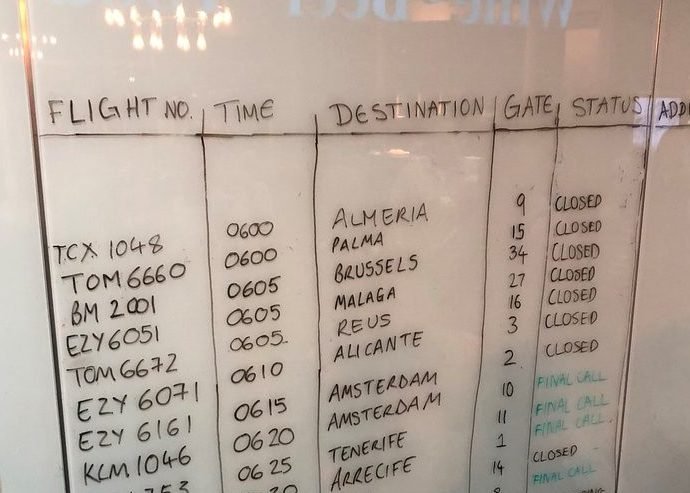 FLIGHT NO. TIME DESTINATION GATE STATUS
TCX 1048 0600 ALMERIA 9 CLOSED
TOM 6660 0600 PALMA 15 CLOSED
BM 2001 0605 BRUSSELS 34 CLOSED
EZY 6051 0605 MALAGA 27 CLOSED
TOM 6672 0605 REUS 16 CLOSED
EZY 6071 0610 ALICANTE 3 CLOSED
EZY 6161 0615 AMSTERDAM 2 CLOSED
KCM 1046 0620 AMSTERDAM 10 FINAL CALL
0625 TENERIFE 11 FINAL CALL
ARRECIFE 1 FINAL CALL
14 CLOSED
FINAL CALL